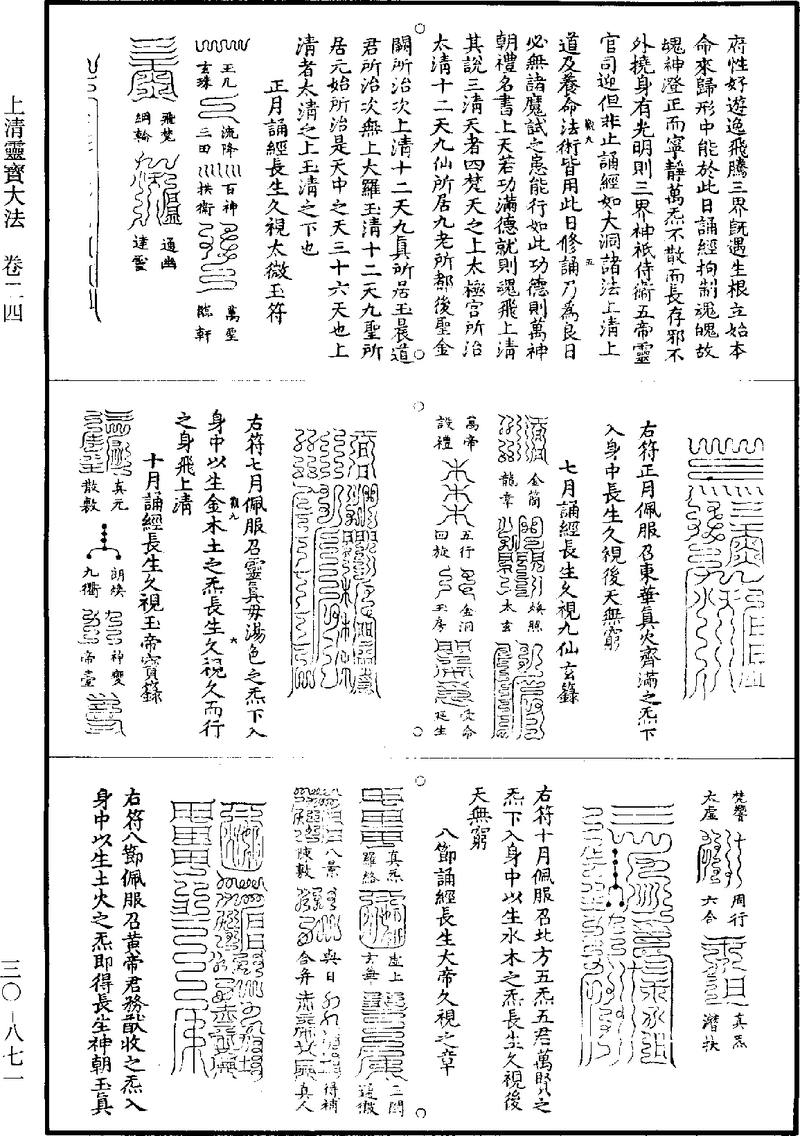 府性好遊逸飛騰三界旣遇生根立始本
命來歸形中能於此日誦經拘制魂魄故
魂神澄正而寧靜萬炁不散而長存邪不
外撓身有光明則三界神祇侍衛五帝靈
官司迎但非止誦經如大洞諸法上清上
道及養命法術皆用此日修誦乃爲良日
必無諸魔試之患能行如此功德則萬神
朝禮名書上天若功滿德就則魂飛上清
其說三清天者四梵天之上太極宮所治
太清十二天九仙所居九老所都後聖金
闕所治次上清十二天九真所居玉晨道
君所治次無上大羅玉清十二天九聖所
居元始所治是天中之天三十六天也上
清者太清之上玉清之下也
正月誦經長生久視太微玉符
玄珠
流降
三田
百神
拱衛
萬聖
臨軒
飛梵
綱輪
通幽
達靈
右符正月佩服召東華真火齊滿之炁下
入身中長生久視後天無窮
七月誦經長生久視九仙玄籙
金簡
龍章
煥照
太玄
萬帝
設禮
五行
四旋
金洞
玉房
受命
延生
右符七月佩服召靈真毋湯色之炁下入
身中以生金木土之炁長生久視久而行
之身飛上清
十月誦經長生久視玉帝寶籙
真元
散敷
朗煥
九衢
神變
帝臺
梵響
太虛
周行
六合
真炁
潛扶
右符十月佩服召北方五炁五君萬賢之
炁下入身中以生水木之炁長生久視後
天無窮
八節誦經長生大帝久視之章
真炁
羅絡
虛上
玄無
三關
八景
陳敷
與日
合并
得補
真人
右符八節佩服召黃帝君務猷收之炁入
身中以生土火之炁即得長生神朝玉真
上清靈寶大法 卷二四
三〇-八七一